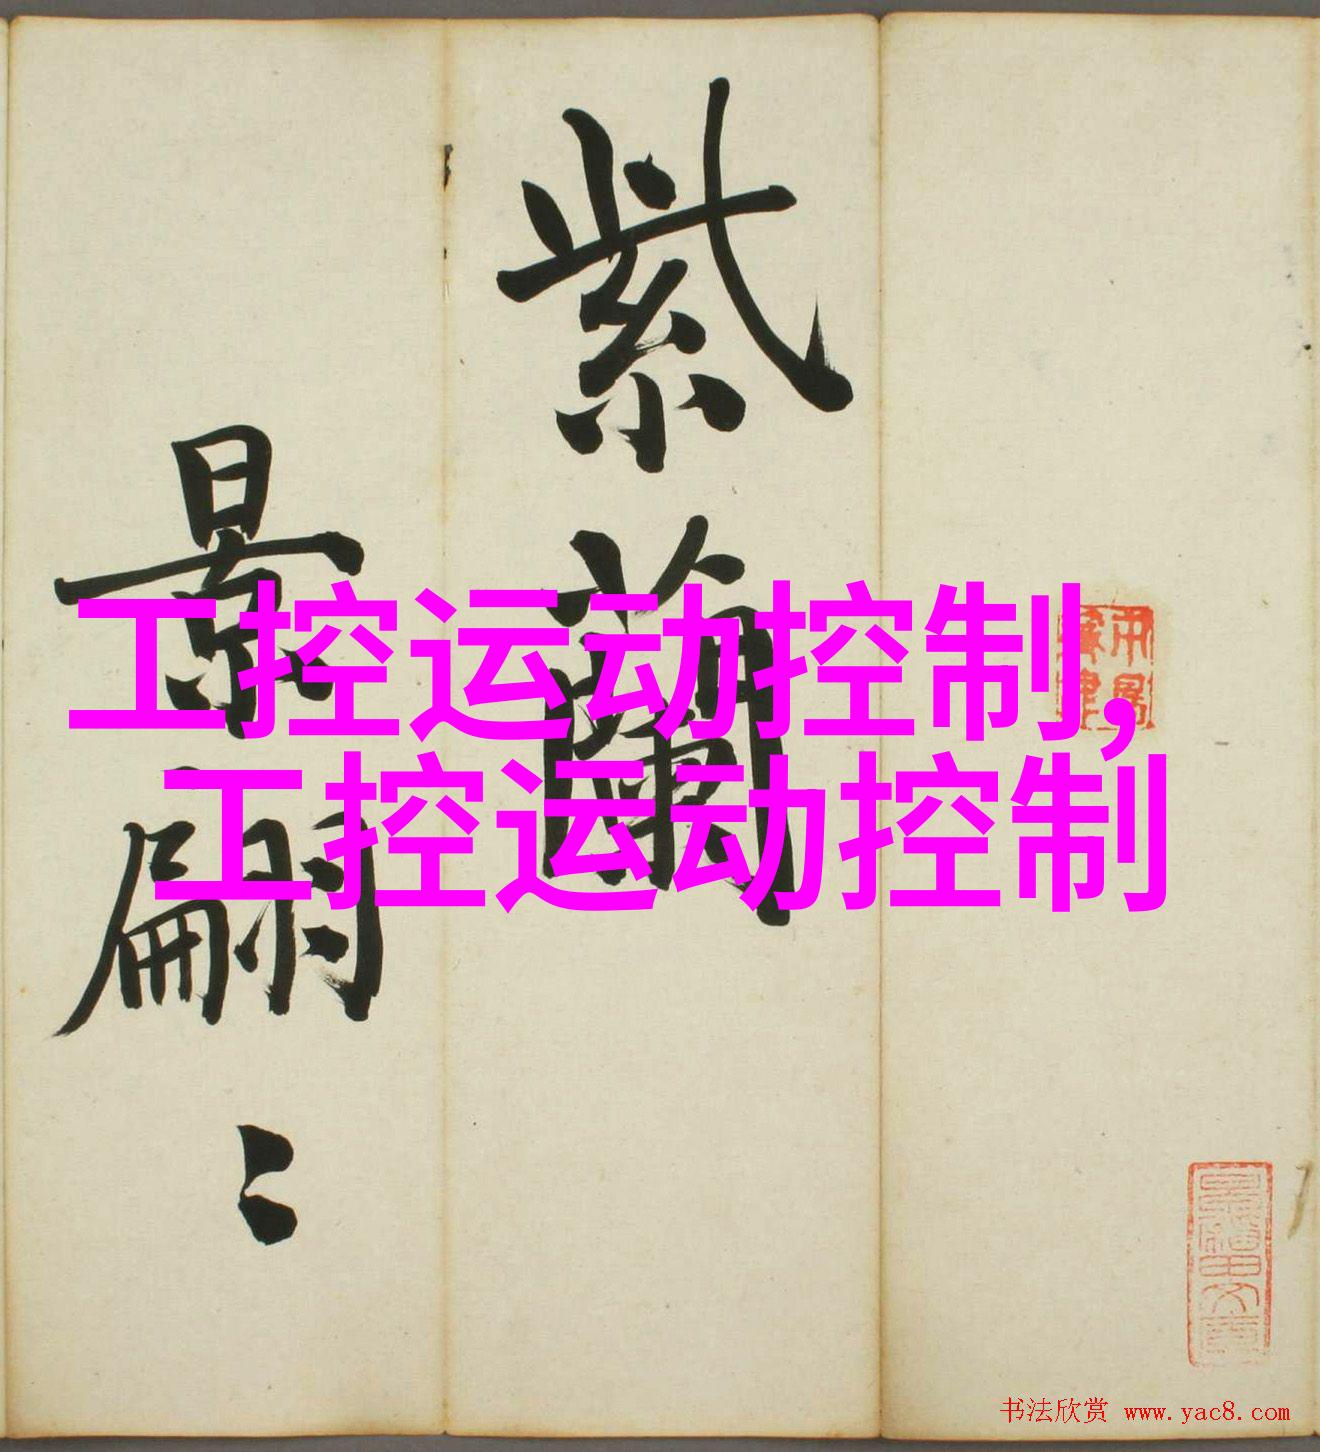 紫蘭
景翩〻
工控运动控制,
工控运动控制
书法欣赏 www.yac8.com